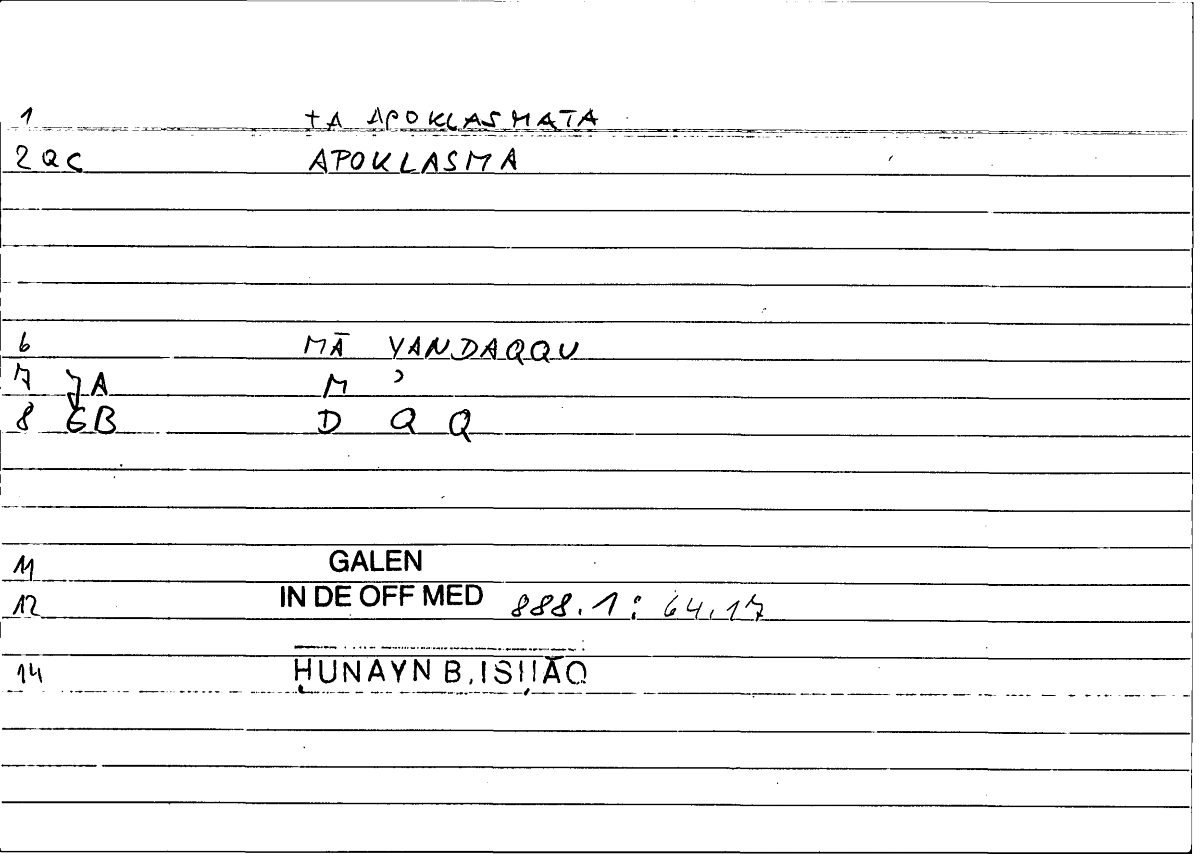 1 TA APOKLASMATA
2 QC APOKLASMA
6 MĀ YANDAQQU
7 7A M ʾ
8 6B D Q Q
11 GALEN
12 IN DE OFF MED 888.1 : 64.17
14 ḤUNAYN B. ISḤĀQ